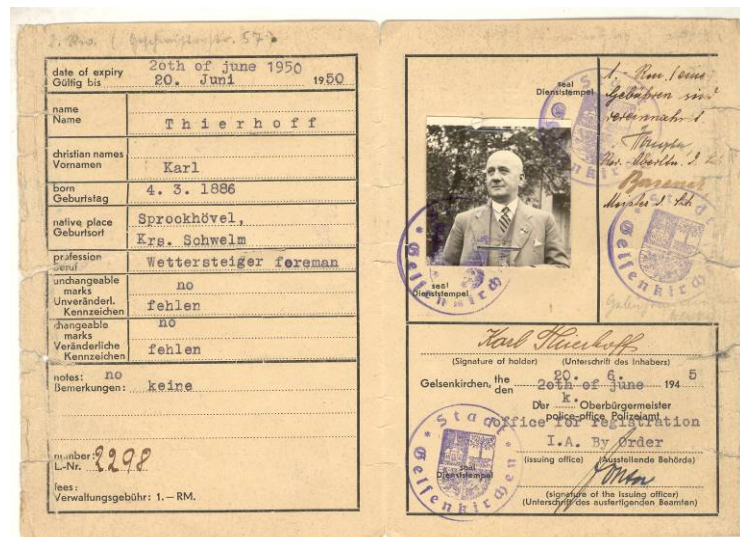 2. Rw. ( Geschwisterstr. 57
date of expiry 20th of june 1950
Gültig bis 20. Juni 1950
name
Name Thierhoff
christian names
Vornamen Karl
born
Geburtstag 4. 3. 1886
native place
Geburtsort Sprockhövel,
Krs. Schwelm
profession
Beruf Wettersteiger foreman
unchangeable
marks no
Unveränderl.
Kennzeichen fehlen
changeable no
marks
Veränderliche
Kennzeichen fehlen
notes: no
Bemerkungen: keine
number:
L.-Nr. 2298
fees:
Verwaltungsgebühr: 1.— RM.
seal
Dienststempel
1.- Rm.
Gebühren sind
vereinnahmt
Stadt Gelsenkirchen
seal
Dienststempel
Karl Thierhoff
(Signature of holder) (Unterschrift des Inhabers)
20. 6. 5
Gelsenkirchen, the 20th of june 194
den
k.
Der Oberbürgermeister
police-office Polizeiamt
office for registration
I.A. By Order
(issuing office) (Ausstellende Behörde)
Stadt Gelsenkirchen
seal
Dienststempel
(signature of the issuing officer)
(Unterschrift des ausfertigenden Beamten)